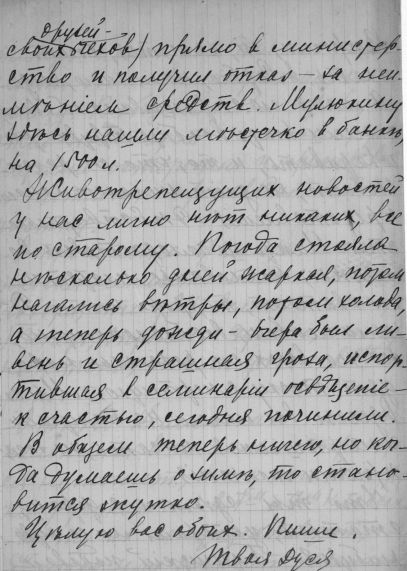 друзей-
своих чехов) прямо в министер-
ство и получил отказ — за неи-
мѣніем средств. Мулюкину
здѣсь нашли мѣстечко в банкѣ,
на 1500 л.
Животрепещущих новостей
у нас лично нѣт никаких, все
по старому. Погода стояла
нѣсколько дней жаркая, потом
начались вѣтры, потом холода,
а теперь дожди - вчера был ли-
вень и страшная гроза, испор-
тившая в семинаріи освѣщеніе -
к счастью, сегодня починили.
В общем теперь ничего, но ког-
да думаешь о зимѣ, то стано-
вится жутко.
Цѣлую вас обоих. Пиши.
Твоя Дуся